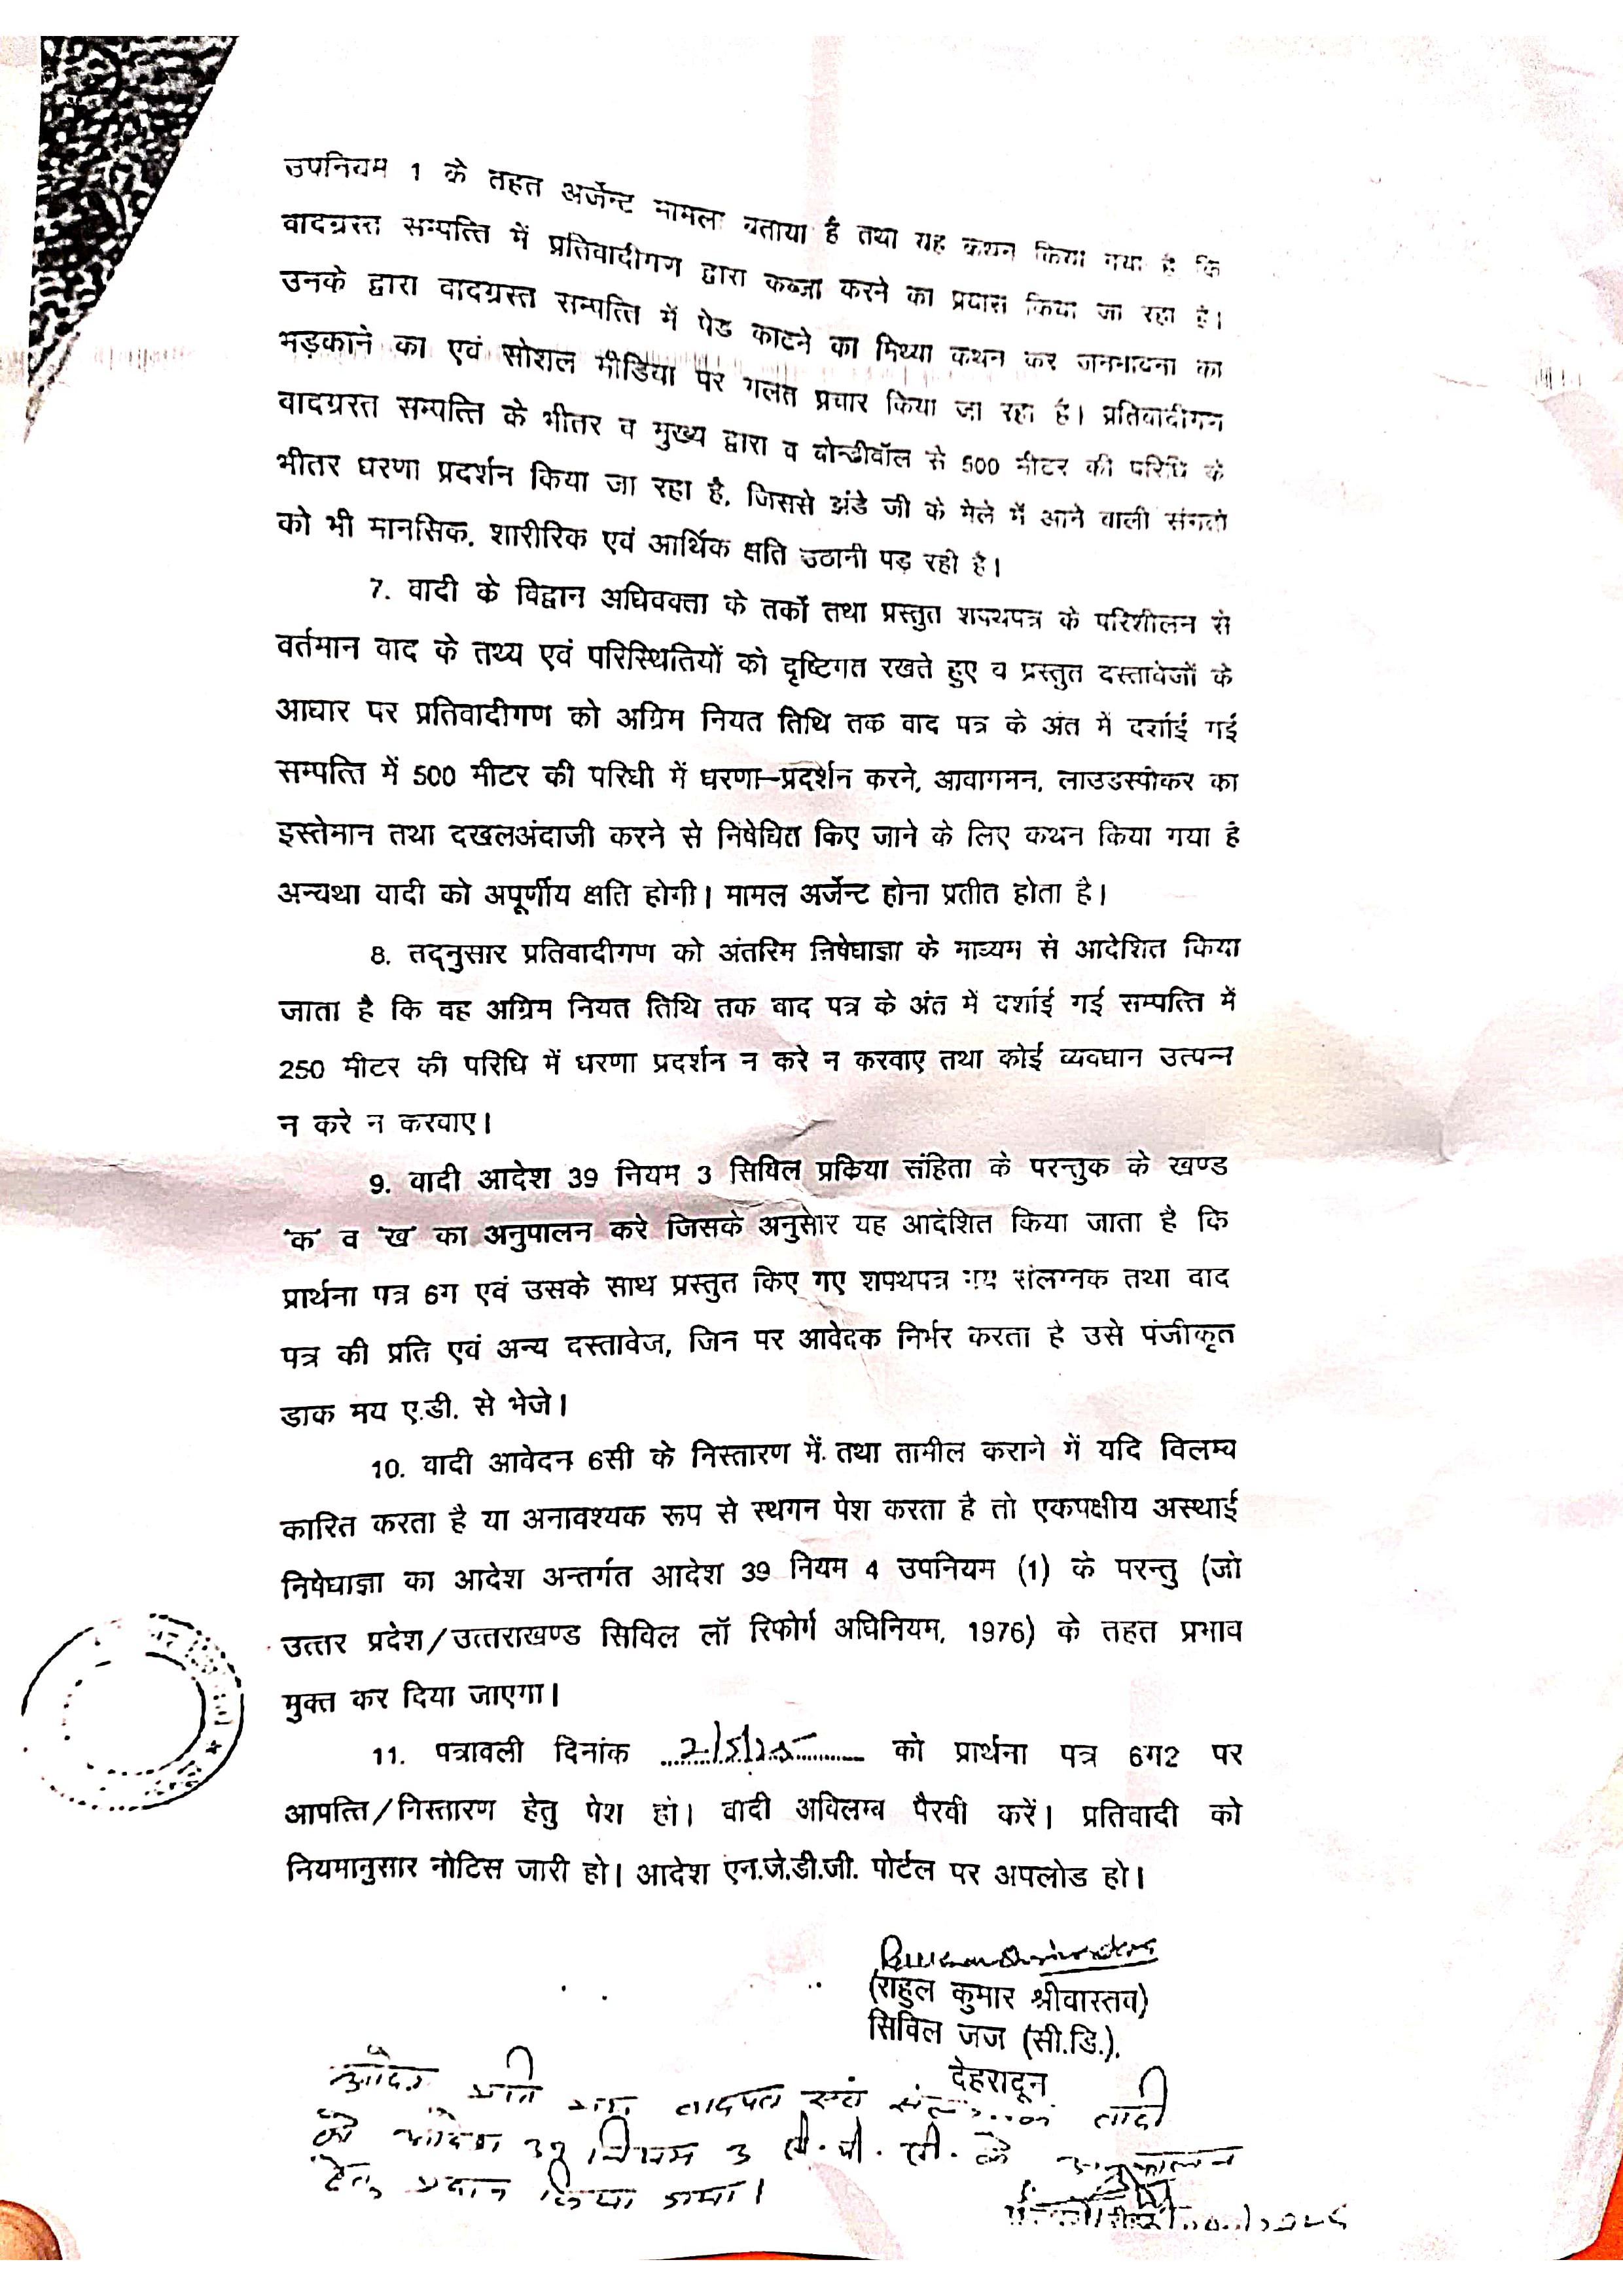 उपनियम 1 के तहत अर्जेन्ट मामला बताया है तथा यह कथन किया गया है कि
वादग्रस्त सम्पत्ति में प्रतिवादीगण द्वारा कब्जा करने का प्रयास किया जा रहा है।
उनके द्वारा वादग्रस्त सम्पत्ति में पेड काटने का मिथ्या कथन कर जनभावना का
भड़काने का एवं सोशल मीडिया पर गलत प्रचार किया जा रहा है। प्रतिवादीगन
वादग्रस्त सम्पत्ति के भीतर व मुख्य द्वारा व बोन्ड्रीवॉल से 500 मीटर की परिधि के
भीतर धरणा प्रदर्शन किया जा रहा है, जिससे झंडे जी के मेले में आने वाली संगतो
को भी मानसिक, शारीरिक एवं आर्थिक क्षति उठानी पड़ रही है।
7. वादी के विद्वान अधिवक्ता के तर्कों तथा प्रस्तुत शपथपत्र के परिशीलन से
वर्तमान वाद के तथ्य एवं परिस्थितियों को दृष्टिगत रखते हुए व प्रस्तुत दस्तावेजों के
आधार पर प्रतिवादीगण को अग्रिम नियत तिथि तक वाद पत्र के अंत में दर्शाई गई
सम्पत्ति में 500 मीटर की परिधी में धरणा–प्रदर्शन करने, आवागमन, लाउडस्पीकर का
इस्तेमान तथा दखलअंदाजी करने से निषेधित किए जाने के लिए कथन किया गया है
अन्यथा वादी को अपूर्णीय क्षति होगी। मामल अर्जेन्ट होना प्रतीत होता है।
8. तद्नुसार प्रतिवादीगण को अंतरिम निषेधाज्ञा के माध्यम से आदेशित किया
जाता है कि वह अग्रिम नियत तिथि तक वाद पत्र के अंत में दर्शाई गई सम्पत्ति में
250 मीटर की परिधि में धरणा प्रदर्शन न करे न करवाए तथा कोई व्यवधान उत्पन्न
न करे न करवाए।
9. वादी आदेश 39 नियम 3 सिविल प्रक्रिया संहिता के परन्तुक के खण्ड
'क' व 'ख' का अनुपालन करे जिसके अनुसार यह आदेशित किया जाता है कि
प्रार्थना पत्र 6ग एवं उसके साथ प्रस्तुत किए गए शपथपत्र मय संलग्नक तथा वाद
पत्र की प्रति एवं अन्य दस्तावेज, जिन पर आवेदक निर्भर करता है उसे पंजीकृत
डाक मय ए.डी. से भेजे।
10. वादी आवेदन 6सी के निस्तारण में तथा तामील कराने में यदि विलम्ब
कारित करता है या अनावश्यक रूप से स्थगन पेश करता है तो एकपक्षीय अस्थाई
निषेधाज्ञा का आदेश अन्तर्गत आदेश 39 नियम 4 उपनियम (1) के परन्तु (जो
उत्तर प्रदेश/उत्तराखण्ड सिविल लॉ रिफोर्म अधिनियम, 1976) के तहत प्रभाव
मुक्त कर दिया जाएगा।
11. पत्रावली दिनांक 2/5/25 को प्रार्थना पत्र 6ग2 पर
आपत्ति/निस्तारण हेतु पेश हो। वादी अविलम्ब पैरवी करें। प्रतिवादी को
नियमानुसार नोटिस जारी हो। आदेश एन.जे.डी.जी. पोर्टल पर अपलोड हो।
(राहुल कुमार श्रीवास्तव)
सिविल जज (सी.डि.),
देहरादून
आदेश प्रति मय वादपत्र एवं वादी
को आदेश 39 नियम 3 सी.पी.सी. के अनुपालन
हेतु प्रदान किया गया।